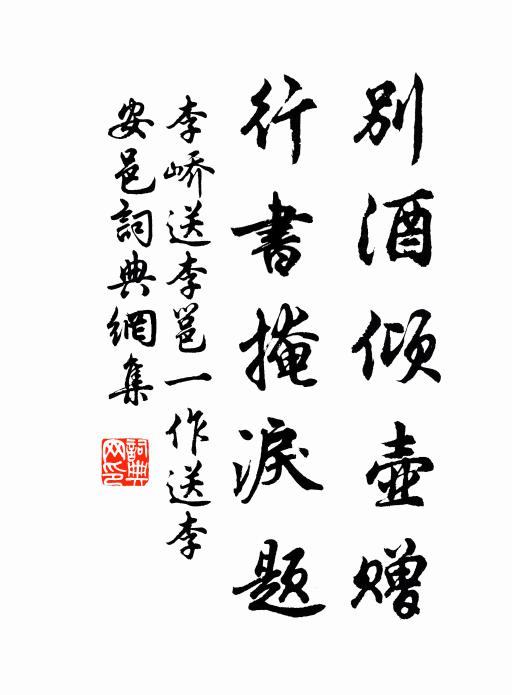 别酒倾壶赠
行書掩淚题
李嶠送李邕一作送李
安邑詞典網集
詞典网印